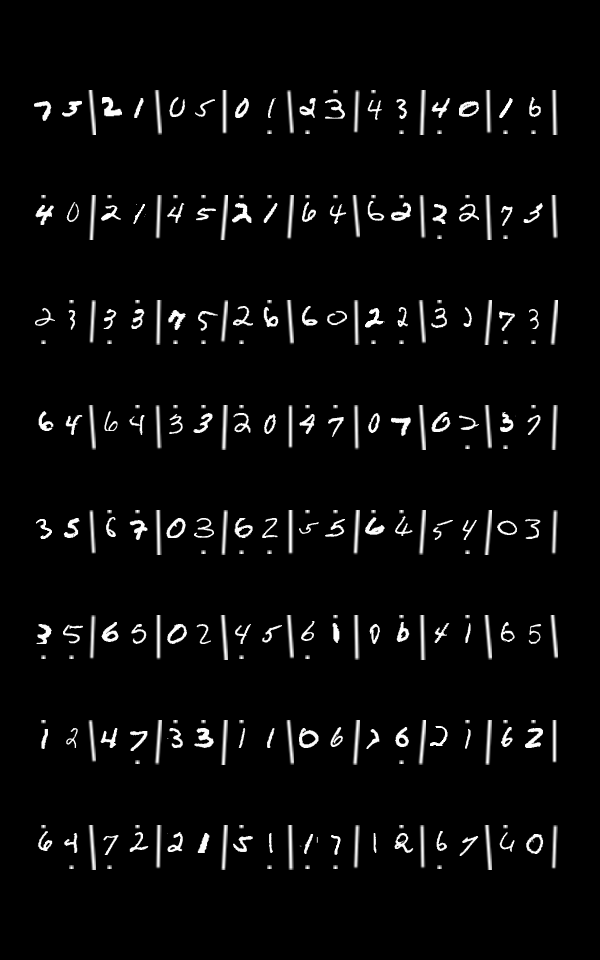 7 5 | 2 1 | 0 5 | 0 1 | 2 3 | 4 3 | 4 0 | 1 6 |
4 0 | 2 1 | 4 5 | 2 1 | 6 4 | 6 2 | 2 2 | 7 3 |
2 3 | 3 3 | 7 5 | 2 6 | 6 0 | 2 2 | 3 2 | 7 3 |
6 4 | 6 4 | 3 3 | 2 0 | 4 7 | 0 7 | 0 2 | 3 7 |
3 5 | 6 7 | 0 3 | 6 2 | 5 5 | 6 4 | 5 4 | 0 3 |
3 5 | 6 5 | 0 2 | 4 5 | 6 1 | 0 6 | 4 1 | 6 5 |
1 2 | 4 7 | 3 3 | 1 1 | 0 6 | 2 6 | 2 1 | 6 2 |
6 4 | 7 2 | 2 1 | 5 1 | 1 7 | 1 2 | 6 7 | 6 0 |